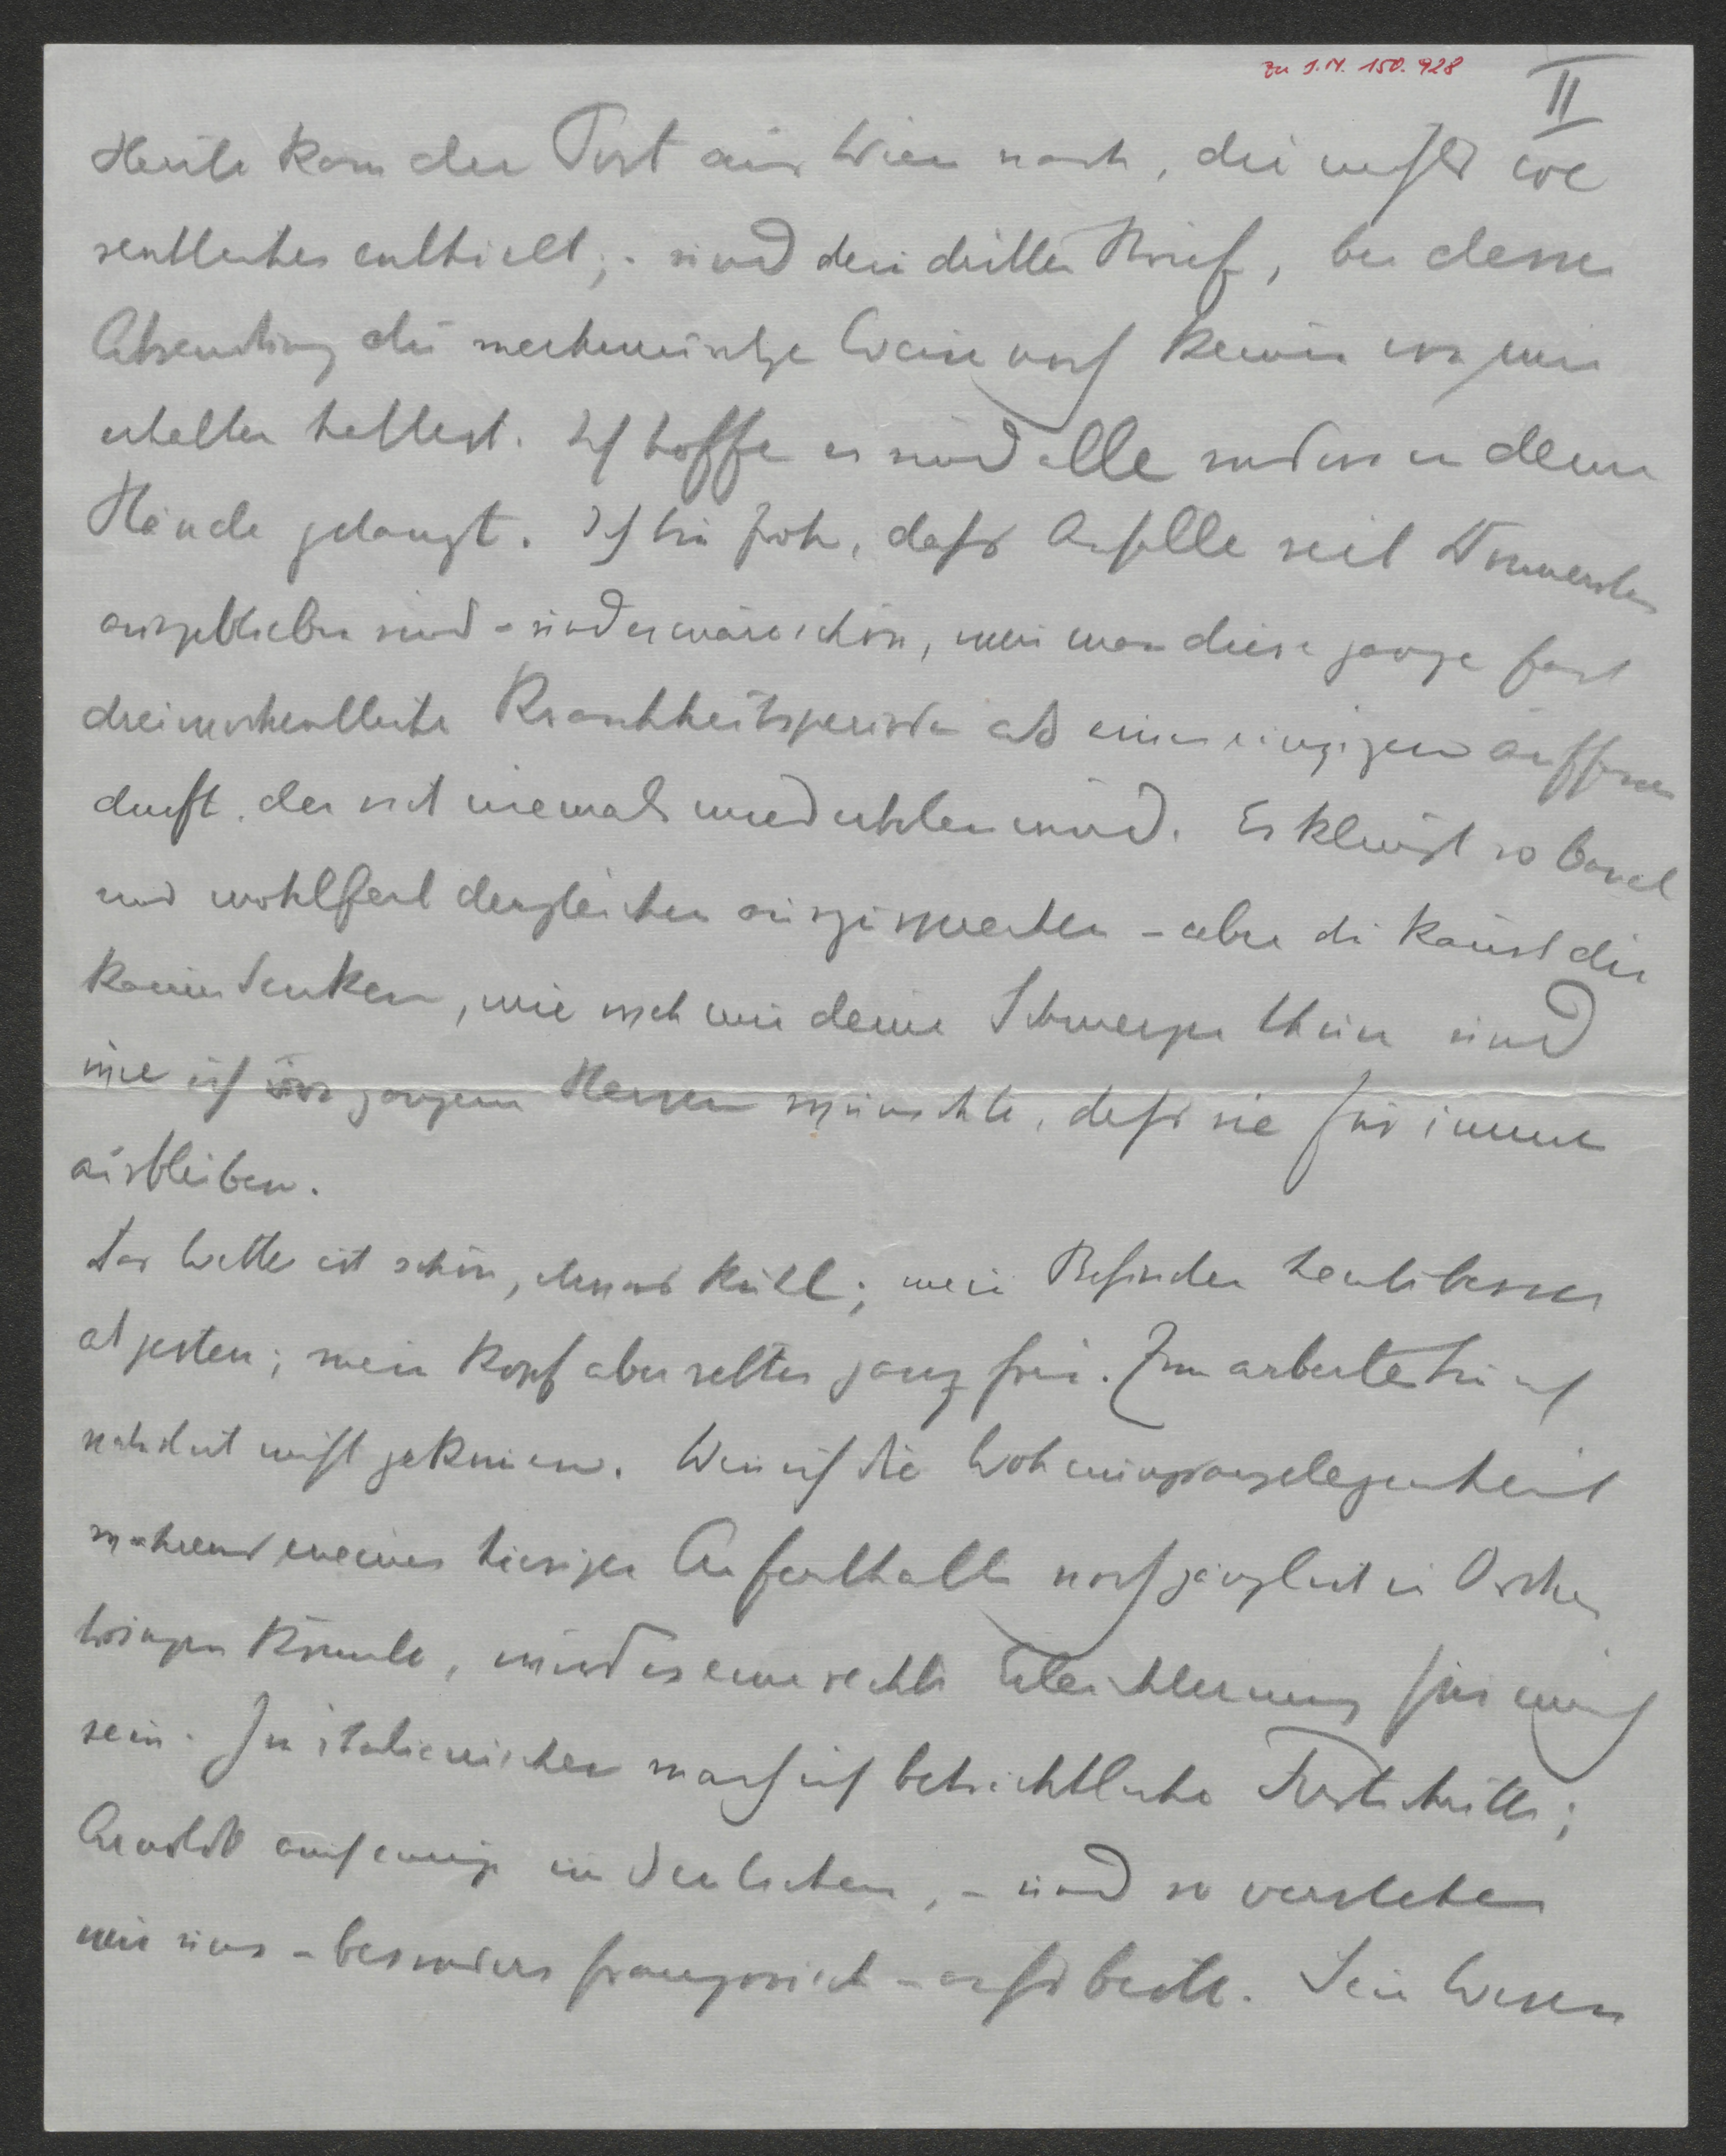 zu I.N. 150.928
II
Heute kam die Post aus Wien nach, die nichts we
sentliches enthielt; - und dein dritter Brief, bei dessen
Absendung du merkwürdige Weise noch keinen von mir
erhalten hattest. Ich hoffe es sind alle indess in deine
Hände gelangt. Ich bin froh, dass Anfälle seit Donnerstag
ausgeblieben sind - und es wäre schön, wenn man diese ganze fast
dreiwochentliche Krankheitsperiode als einen einzigen auffassen
durft, der sich niemals wiederholen wird. Es klingt so banal
und wohlfeil dergleichen auszusprechen - aber du kannst dir
kaum denken, wie weh mir deine Schmerzen thun und
wie ich von ganzem Herzen wünschte, dass sie für immer
ausbleiben.
Das Wetter ist schön, etwas kühl; mein Befinden heut besser
als gestern; mein Kopf aber selten ganz frei. Zum arbeiten bin ich
noch nicht gekommen. Wenn ich die Wohnungsangelegenheit
während meines hiesigen Aufenthalts noch gänzlich in Ordnung
bringen könnte, wird es eine rechte Erleichterung für mich
sein. Im italienischen mach ich beträchtliche Fortschritte;
Arnoldo einige im deutschen, - und so verstehen
wir uns - besonders französisch - aufs beste. Sein Wesen